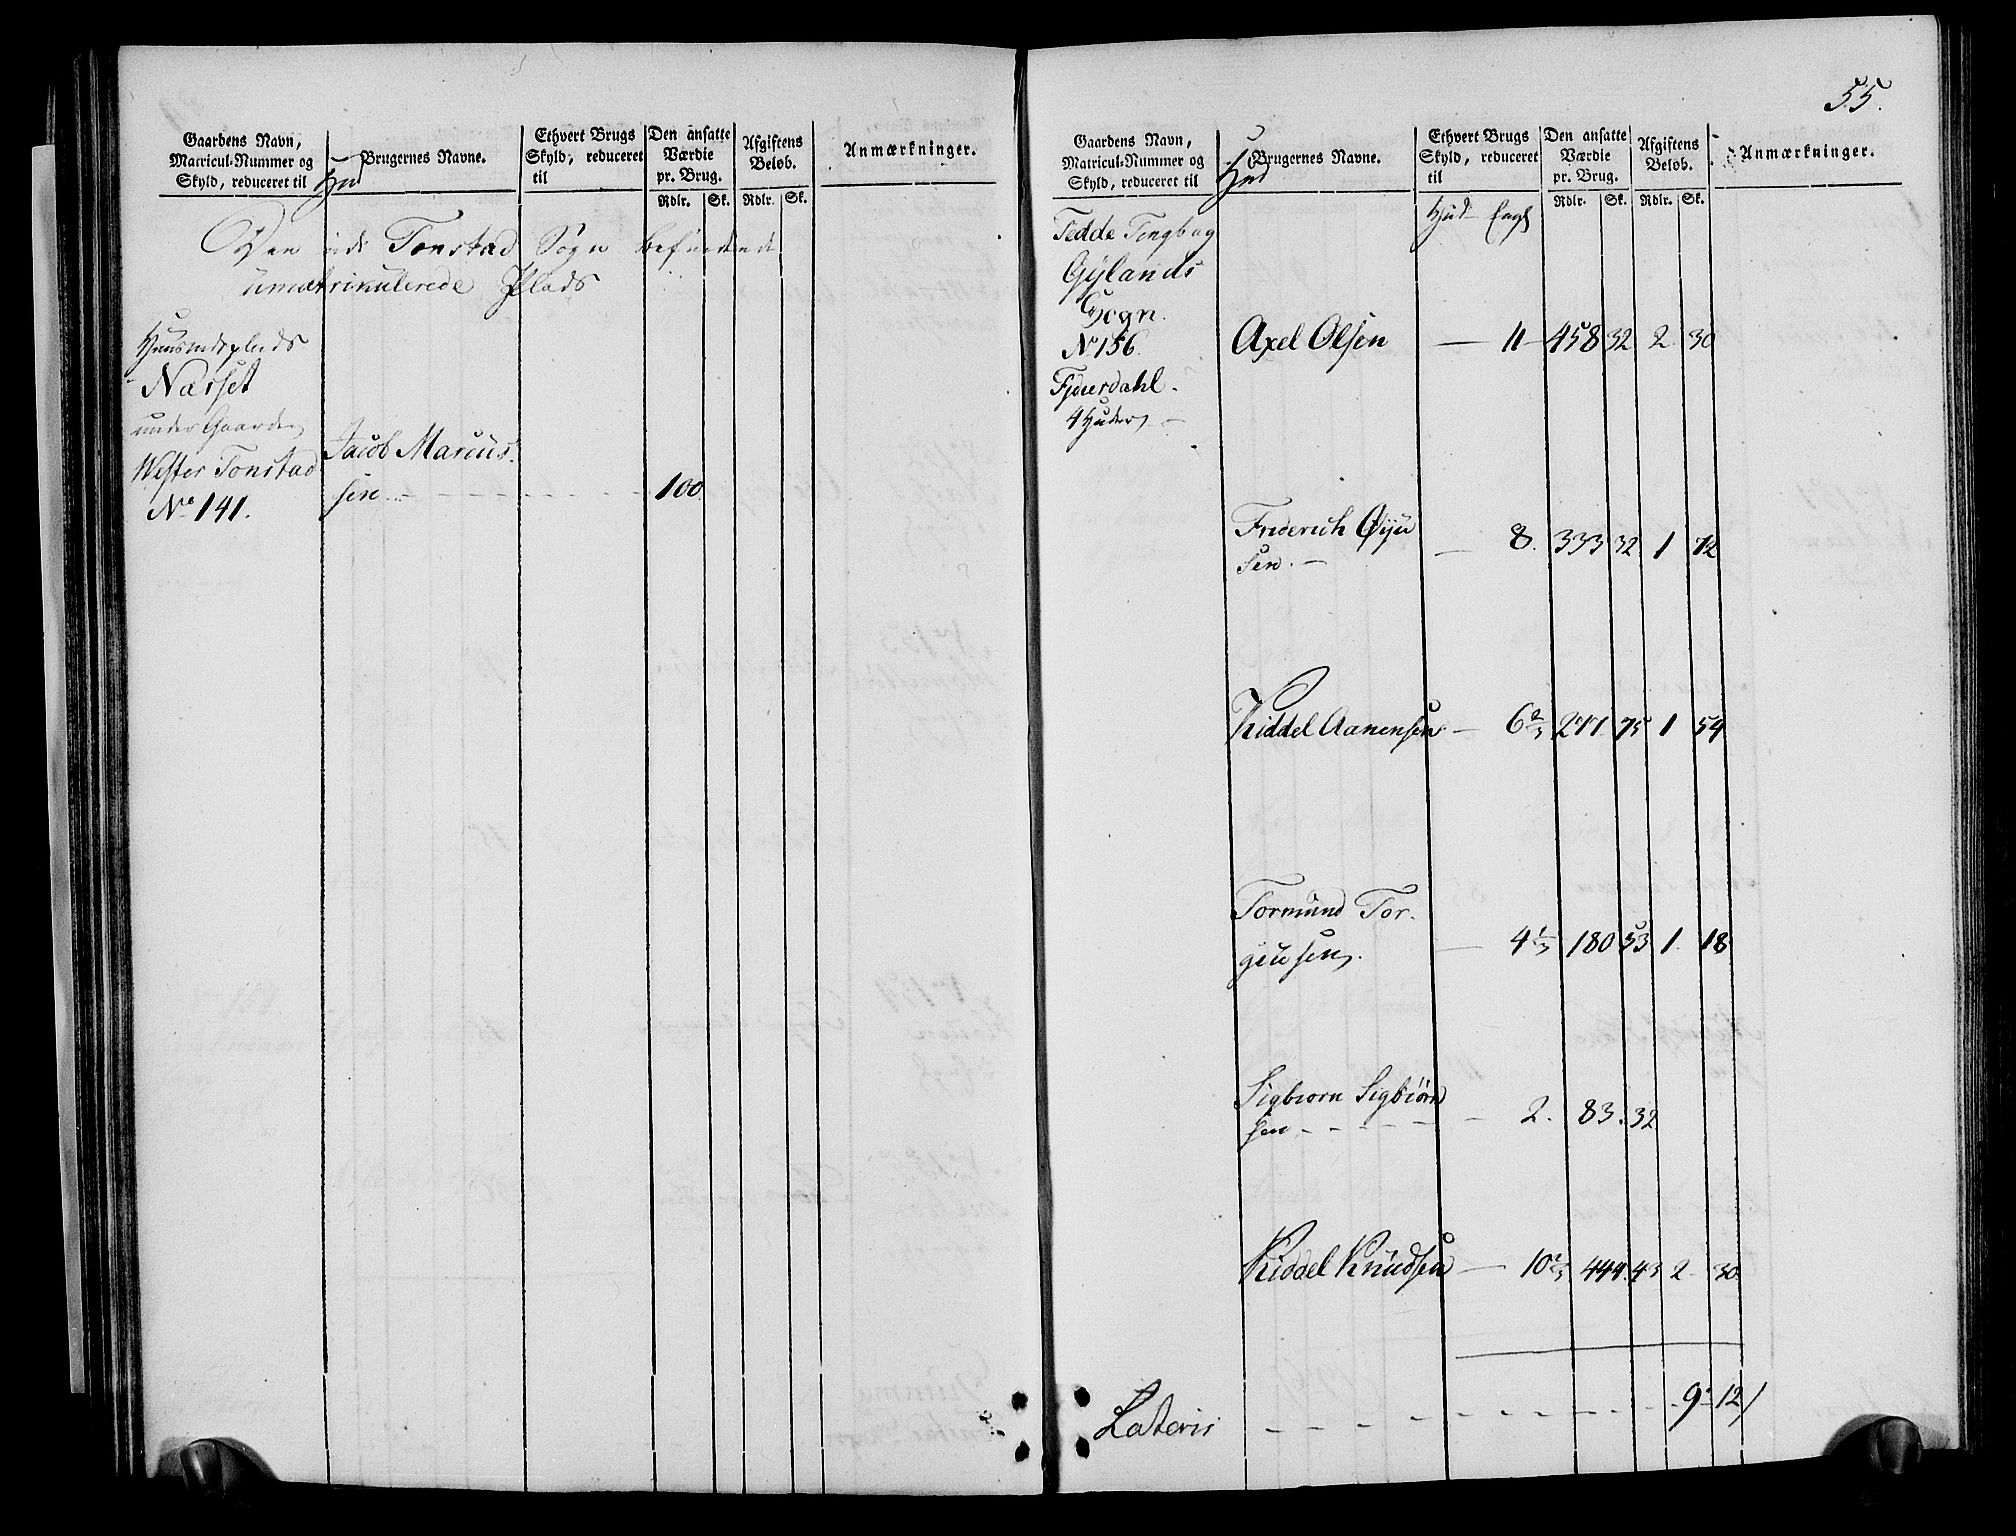 Gaardens Navn,
Matricul-Nummer og
Skyld, reduceret til
Hud
Brugernes Navne.
Ethvert Brugs
Skyld, reduceret
til
Den ansatte
Værdie
pr. Brug.
Rdlr. Sk.
Afgiftens
Beløb.
Rdlr. Sk.
Anmærkninger.
Den udi Tonstad Sogn befindende
umatrikulerede Plads
Huusmdsplads
Næset
under Gaarden
Wester Tonstad
No 141.
Jacob Marcus-
sen 100
55.
Gaardens Navn,
Matricul-Nummer og
Skyld, reduceret til
Hud
Brugernes Navne.
Ethvert Brugs
Skyld, reduceret
til
Hud Engl
Den ansatte
Værdie
pr. Brug.
Rdlr. Sk.
Afgiftens
Beløb.
Rdlr. Sk.
Anmærkninger.
Fedde Tingbog
Gylands
Sogn.
No 156.
Fjeuerdahl.
4 Huder
Axel Olsen — 11 — 458 32 2 30
Friderich
sen. — 8. 333 32 1 72
Kiddel Aanensen — 6 2/3 277 75 1 54
Tormund Tor-
geusen. — 4 1/3 180 53 1. 18
Sigbiorn Sigbiörn
sen — 2. 83. 32
Kiddel Knudsen — 10 2/3 444. 43 2 30.
Lateris 9 - 12/